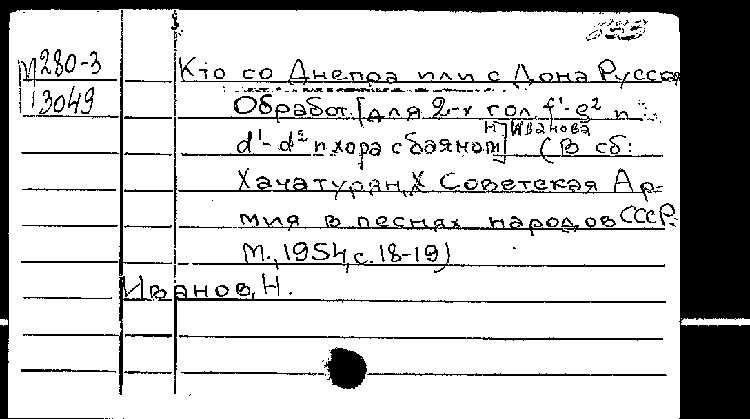 М280-3
13049
Кто со Днепра или с Дона Русская
Обработ. [для 2-х гол f¹-g² и
d¹-d² и хора с баяном] Н. Иванова (В сб:
Хачатурян, Х Советская Ар-
мия в песнях народов СССР.
М., 1954, с. 18-19)
Иванов, Н.